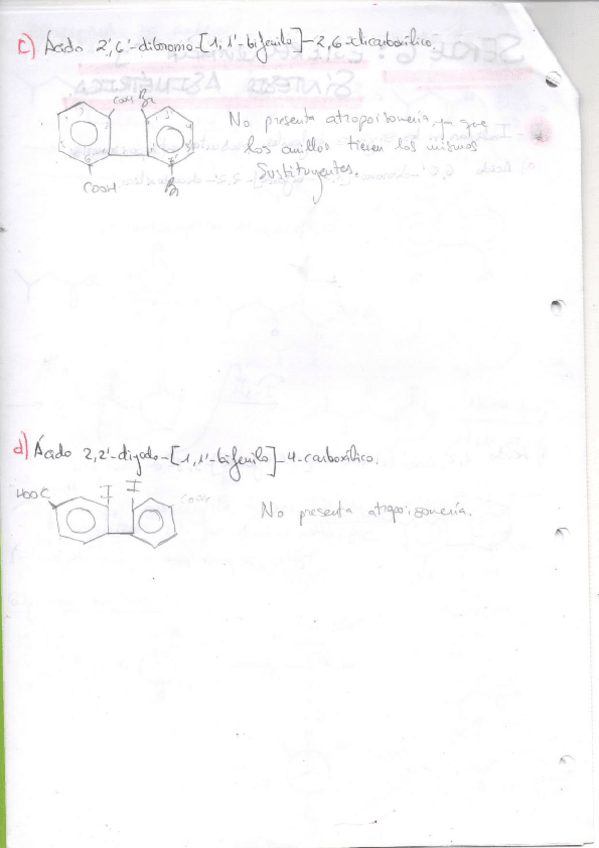 c) Ácido 2',6'-dibromo-[1,1'-bifenilo]-2,6-dicarboxílico.
COOH Br
No presenta atropoisomería, ya que
los anillos tienen los mismos
sustituyentes.
COOH Br
d) Ácido 2,2'-diyodo-[1,1'-bifenilo]-4-carboxílico.
HOOC I I
No presenta atropoisomería.